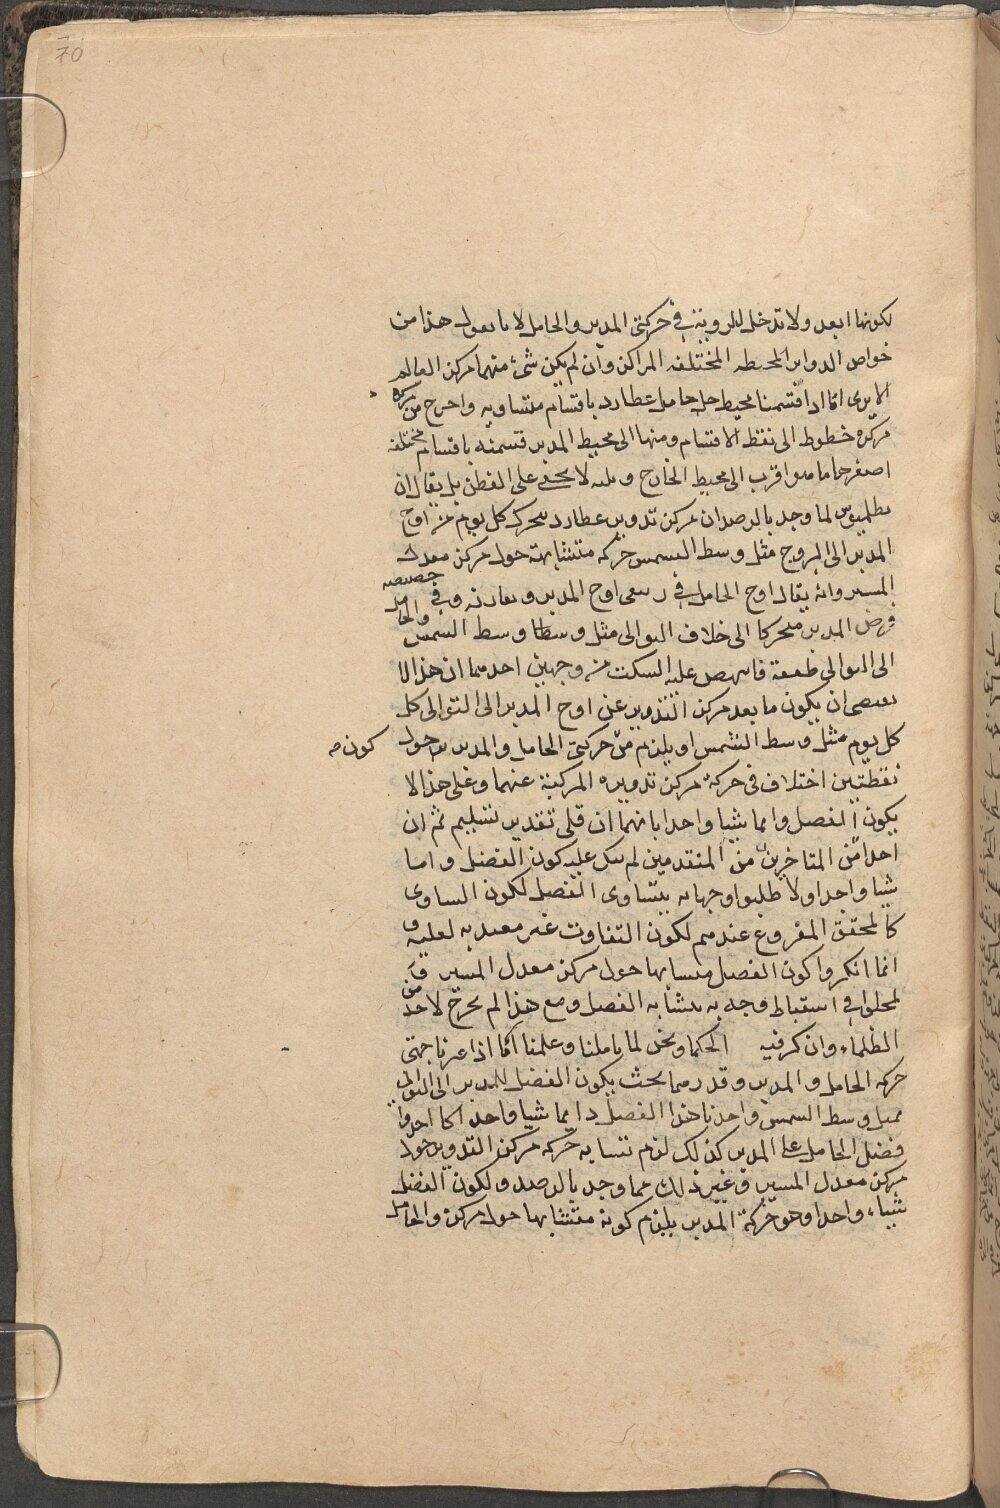 70
لكونها ابعد ولا تدخل للروية في حركتى المدير والحامل لا نا نعول هذا من
خواص الدواير المحيطه المختلفه المراكز وان لم يكن شىء منهما مركز العالم
الا يرى انا اذا قسمنا محيط حامل عطارد باقسام متساويه واخرج من مركزه
مركزه خطوط الى نقط الاقسام ومنها الى محيط المدير قسمته باقسام مختلفه
اصغرها ما هو اقرب الى محيط الخارج و لا يخفى على الفطن بل يقال ان
بطلميوس لما وجد بالرصد ان مركز تدوير عطارد يتحرك كل يوم من اوج
المدير الى البروج مثل وسط الشمس حركه متشابهة حول مركز معدل
المسير وانه يقال اوج الحامل في ربعى اوج المدير و وفي حضيضه
فرض المدير متحركا الى خلاف التوالى مثل وسط الشمس والحامل
الى التوالى ضعفه عليه السكت من وجهين احدهما ان هذا لا
يقتضى ان يكون ما بعد مركز التدوير عن اوج المدير الى التوالى كل
كل يوم مثل وسط الشمس او يلزم من حركتى الحامل والمدير حول كون
نقطتين اختلاف في حركة مركز تدويره المركبة عنهما وعلى هذا لا
يكون الفصل دايما شيا واحدا ان قلى تقدير تسليم ثم ان
احدا من المتاخرين من المتقدمين لم عليه كون الفضل دايما
شيا واحدا ولا طلبوا وجها به يتساوى الفصل لكون التساوى
كالمحقق المفروغ عندهم لكون التفاوت غير معتد به لعليه و
انما انكروا كون الفصل متشابها حول مركز معدل المسير
في استنباط وجه به تشابه الفصل ومع هذا لم يخرج لاحد من
الظلماء وان كثر فيه الحكما ونحن لما تاملنا وعلمنا انا اذا غيرنا جهتى
حركه الحامل والمدير وقدرهما بحيث يكون الفضل للمدير الى التوالى
مثل وسط الشمس واخذنا هذا الفصل دايما شيا واحدا كما اخذوا
فضل الحامل على المدير كذلك لزم تشابه حركه مركز التدوير حول
مركز معدل المسير وغير ذلك مما وجد بالرصد ولكون الفضل
شيا واحدا وهو حركة المدير يلزم كونه متشابها حول مركزه والحامل